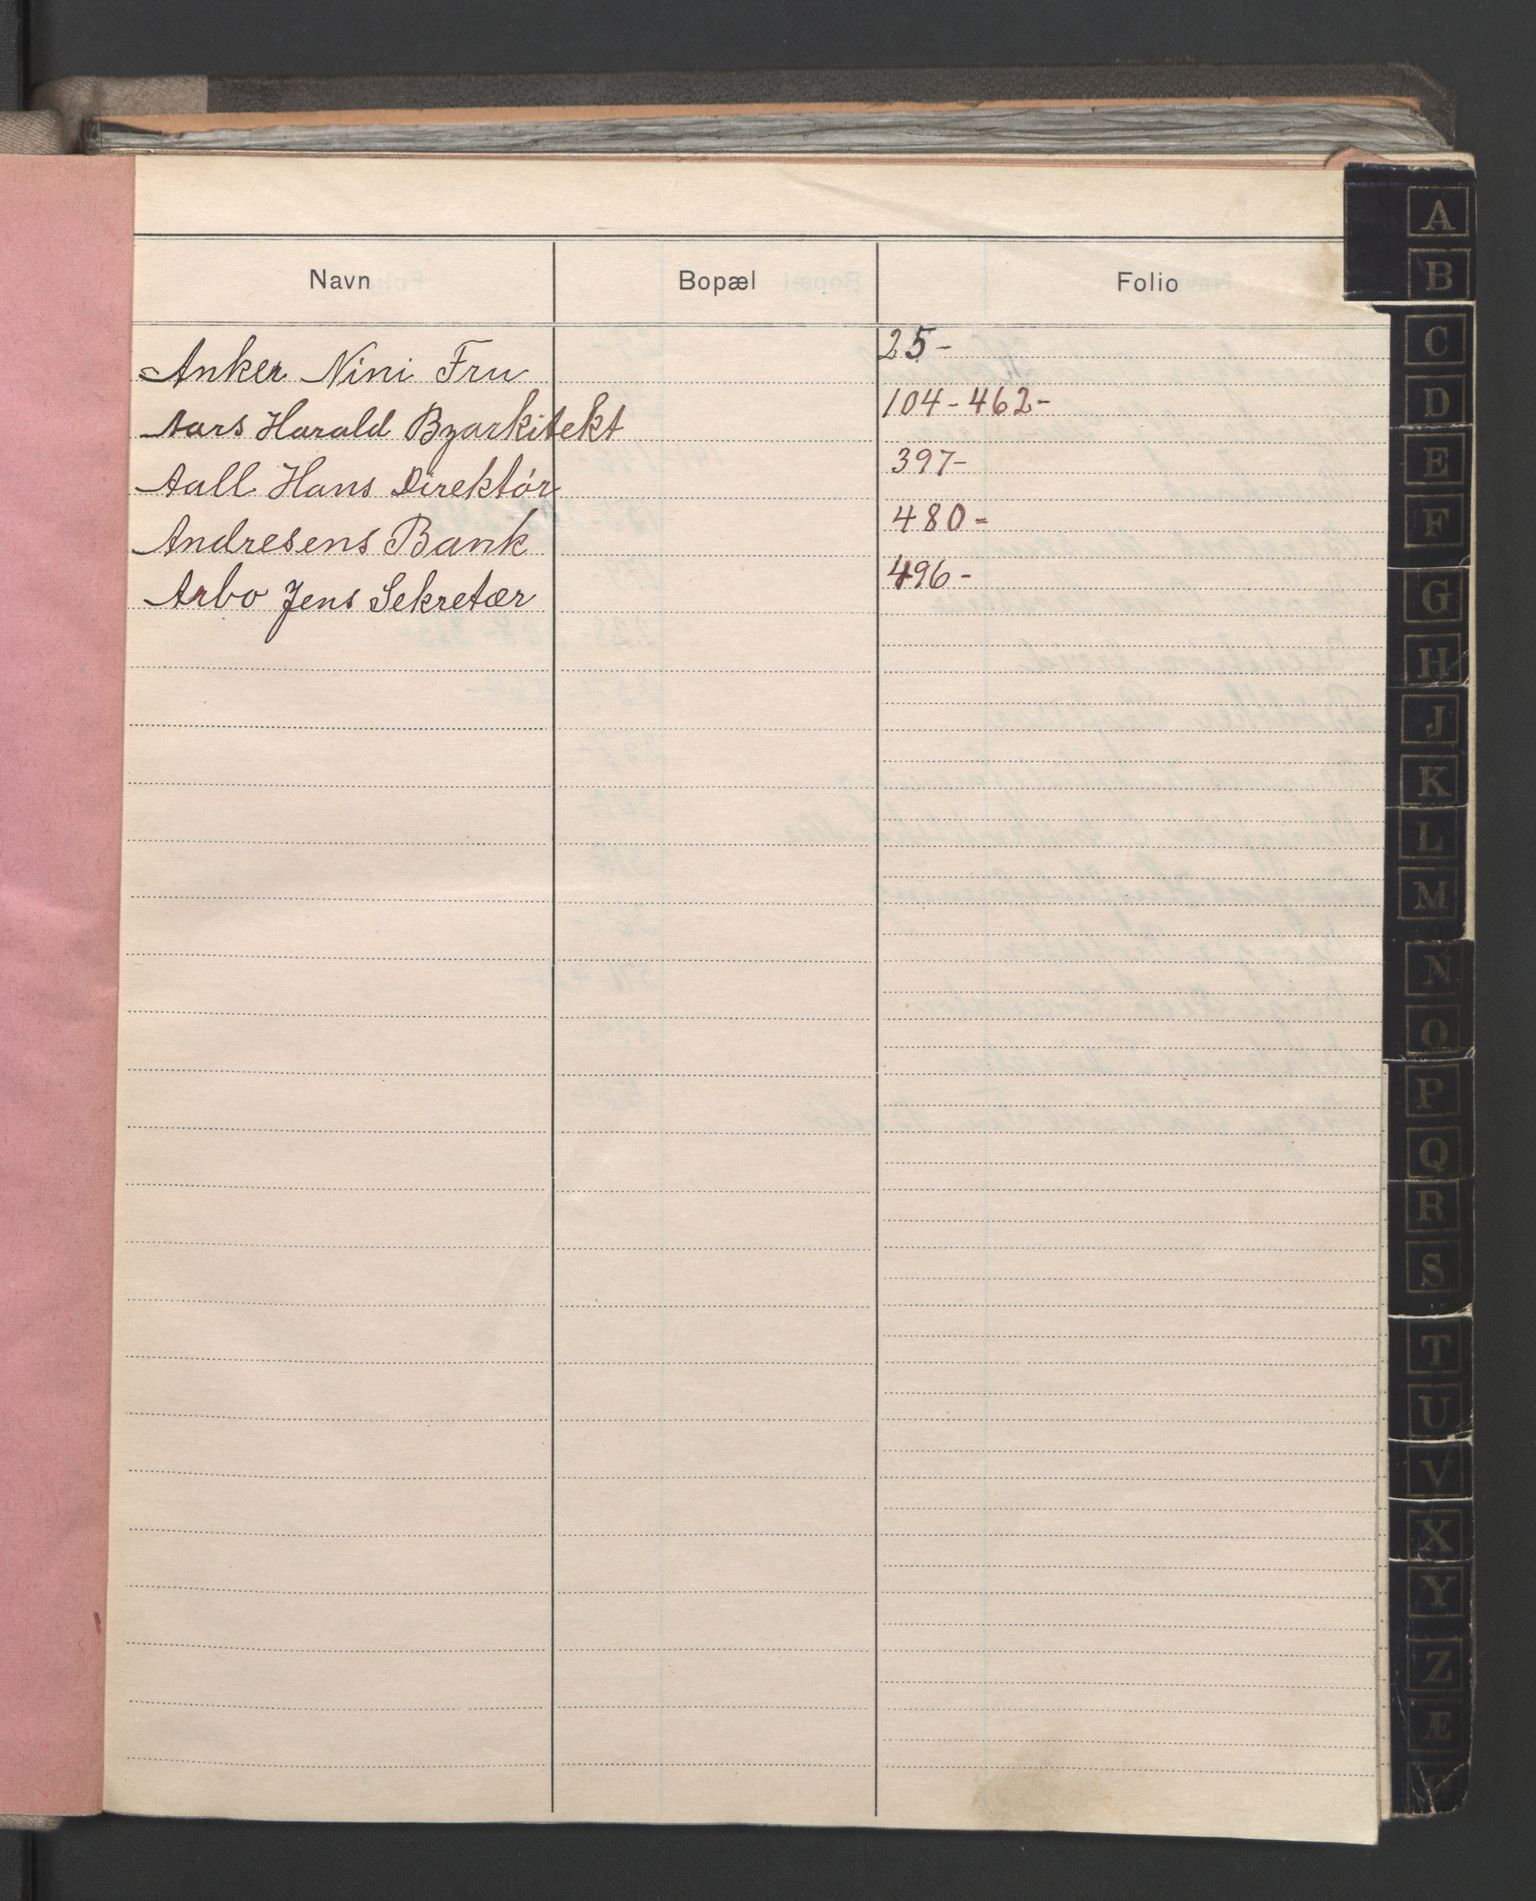 Navn Bopæl Folio
Anker Nini Fru 25-
Aars Harald Byarkitekt 104-462-
Aall Hans Direktör 397-
Andresens Bank 480-
Arbo Jens Sekretær 496-
A
B
C
D
E
F
G
H
J
K
L
M
N
O
P
Q
R
S
T
U
V
X
Y
Z
Æ